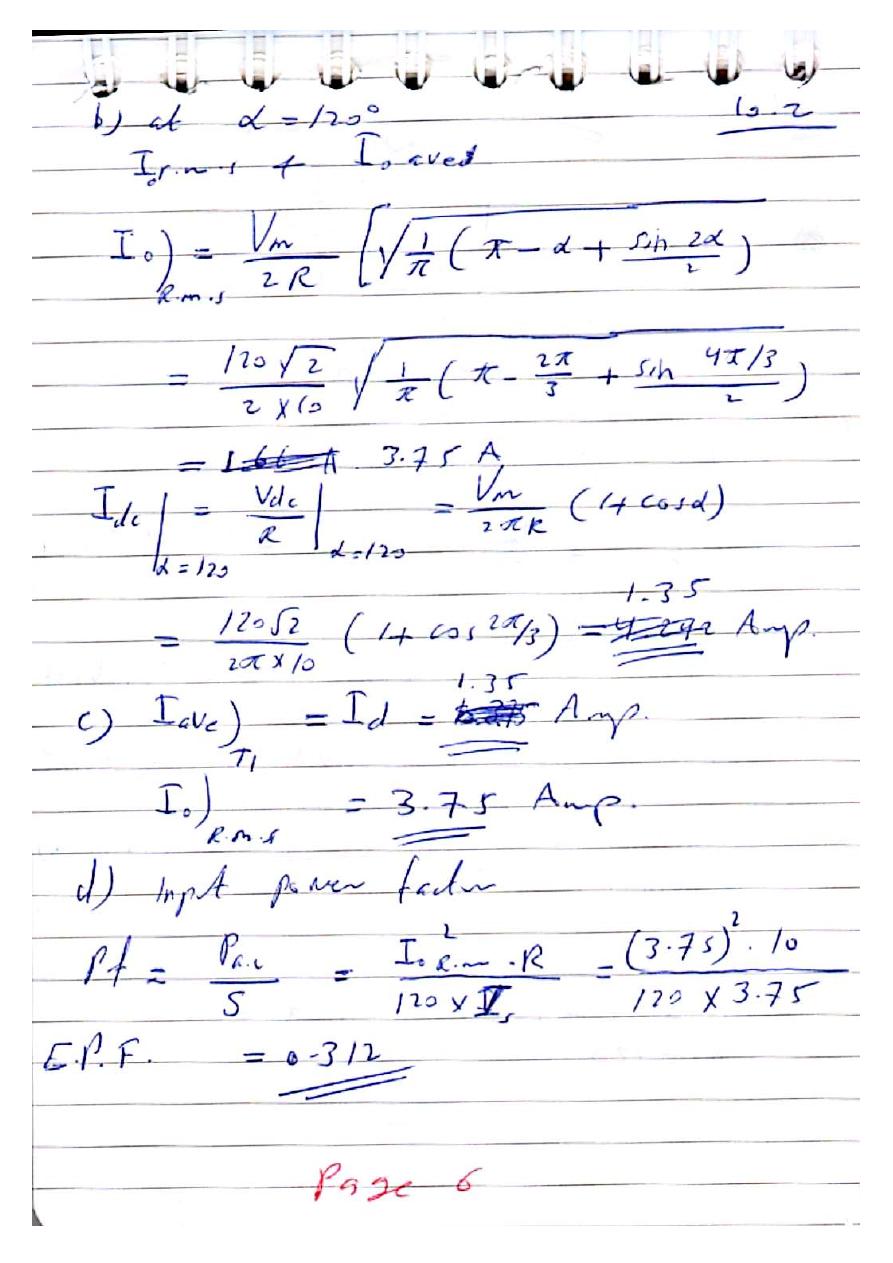 b) at α = 120° 10.2
I₀r.m.s + I₀ aved
I₀)R.m.s = Vm / 2R [√(1/π (π - α + sin 2α / 2))
= 120√2 / 2×10 √(1/π (π - 2π/3 + sin 4π/3 / 2))
= 3.75 A
Idc|α=120 = Vdc / R |α=120 = Vm / 2πR (1+ cosα)
= 120√2 / 2π×10 (1+ cos 2π/3) = 1.35 Amp.
c) Iave)T1 = Id = 1.35 Amp.
I₀)R.m.s = 3.75 Amp.
d) Input power factor
Pf = Pa.c / S = I₀²R.m .R / 120 × Is = (3.75)². 10 / 120 × 3.75
E.P.F. = 0.312
Page 6